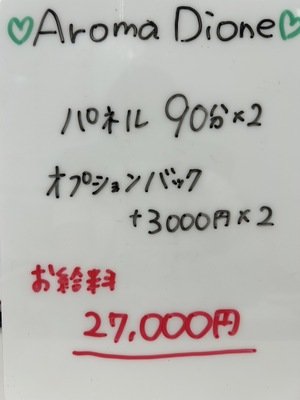 ♡Aroma Dione♡
パネル 90分×2
オプションバック
+3000円×2
お給料
27,000円